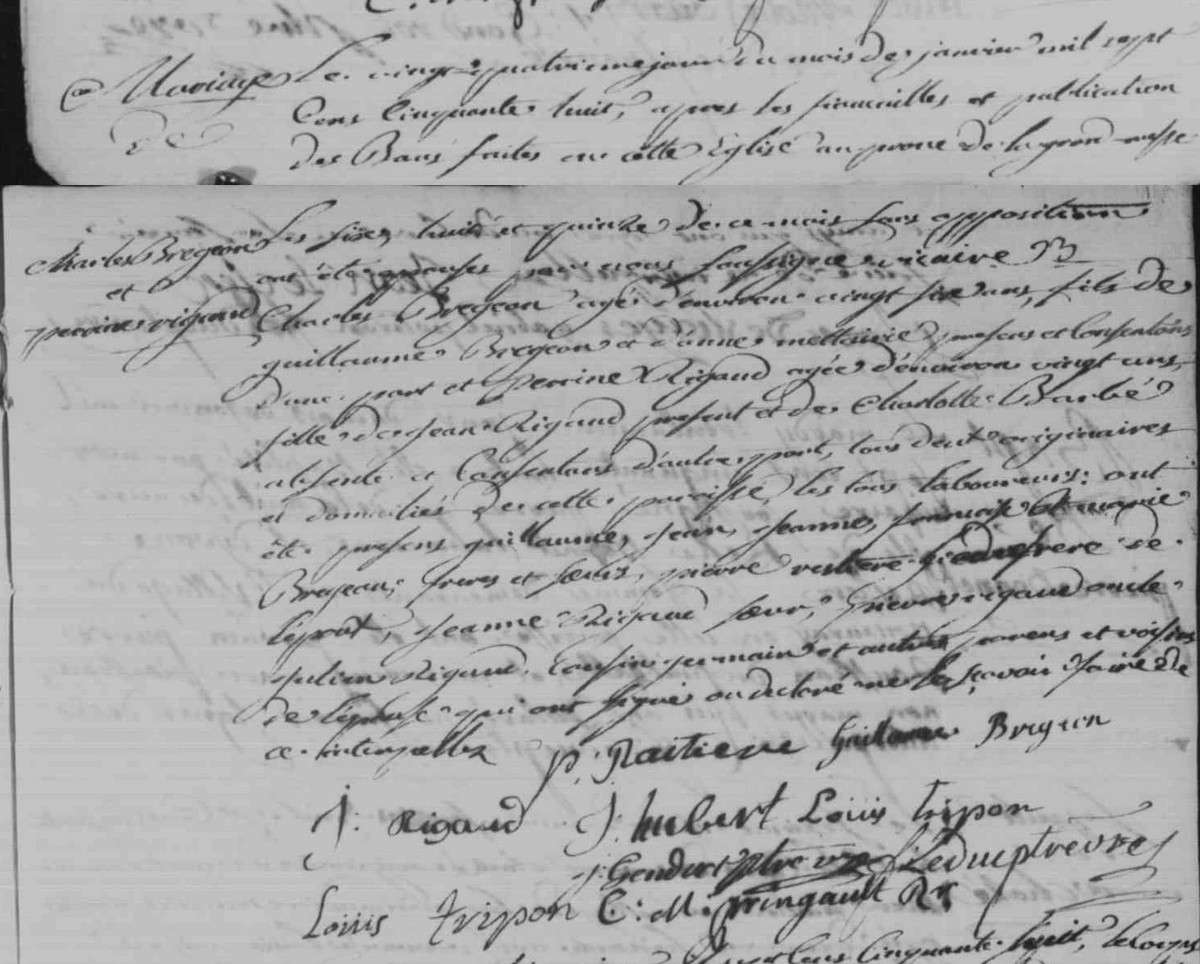 Mariage
de
Charles Bregeon
et
perrine rigaud
Le vingt quatrieme jour du mois de janvier mil sept
Cens Cinquante huit, apres les fiancailles et publication
des Bans faites en cette Eglise au prone de la grand messe
les six, huit et quinze de ce mois sans oppposition
ont été epousés par nous soussigné vicaire
Charles Bregeon agé d'environ vingt six ans, fils de
guillaume Bregeon et d'anne mettaivié presens et Consentans
d'une part et Perrine Rigaud agée d'environ vingt ans,
fille de Jean Rigaud present et de Charlotte Barbé
absente et Consentans d'autre part, tous deux originaires
et domiciliés de cette paroisse, les tous laboureurs; ont
été presens guillaume, Jean, Jeanne, francoise et marie
Bregeon, freres et sœurs, pierre beaufrere de
l'epoux, Jeanne Rigaud sœur, pierre rigaud oncle
Julien Rigaud, Cousin germain et autres parens et voisins
de l'epouse qui ont signé ou declaré ne le sçavoir faire de
ce interpellés P: Raitiere Guillaume Bregeon
J: Rigaud J: hubert Louis tripon
J: Gendert ptre vre Leduc ptre vre
Louis tripon C: M: pringault Rr
Cens Cinquante huit, le corps